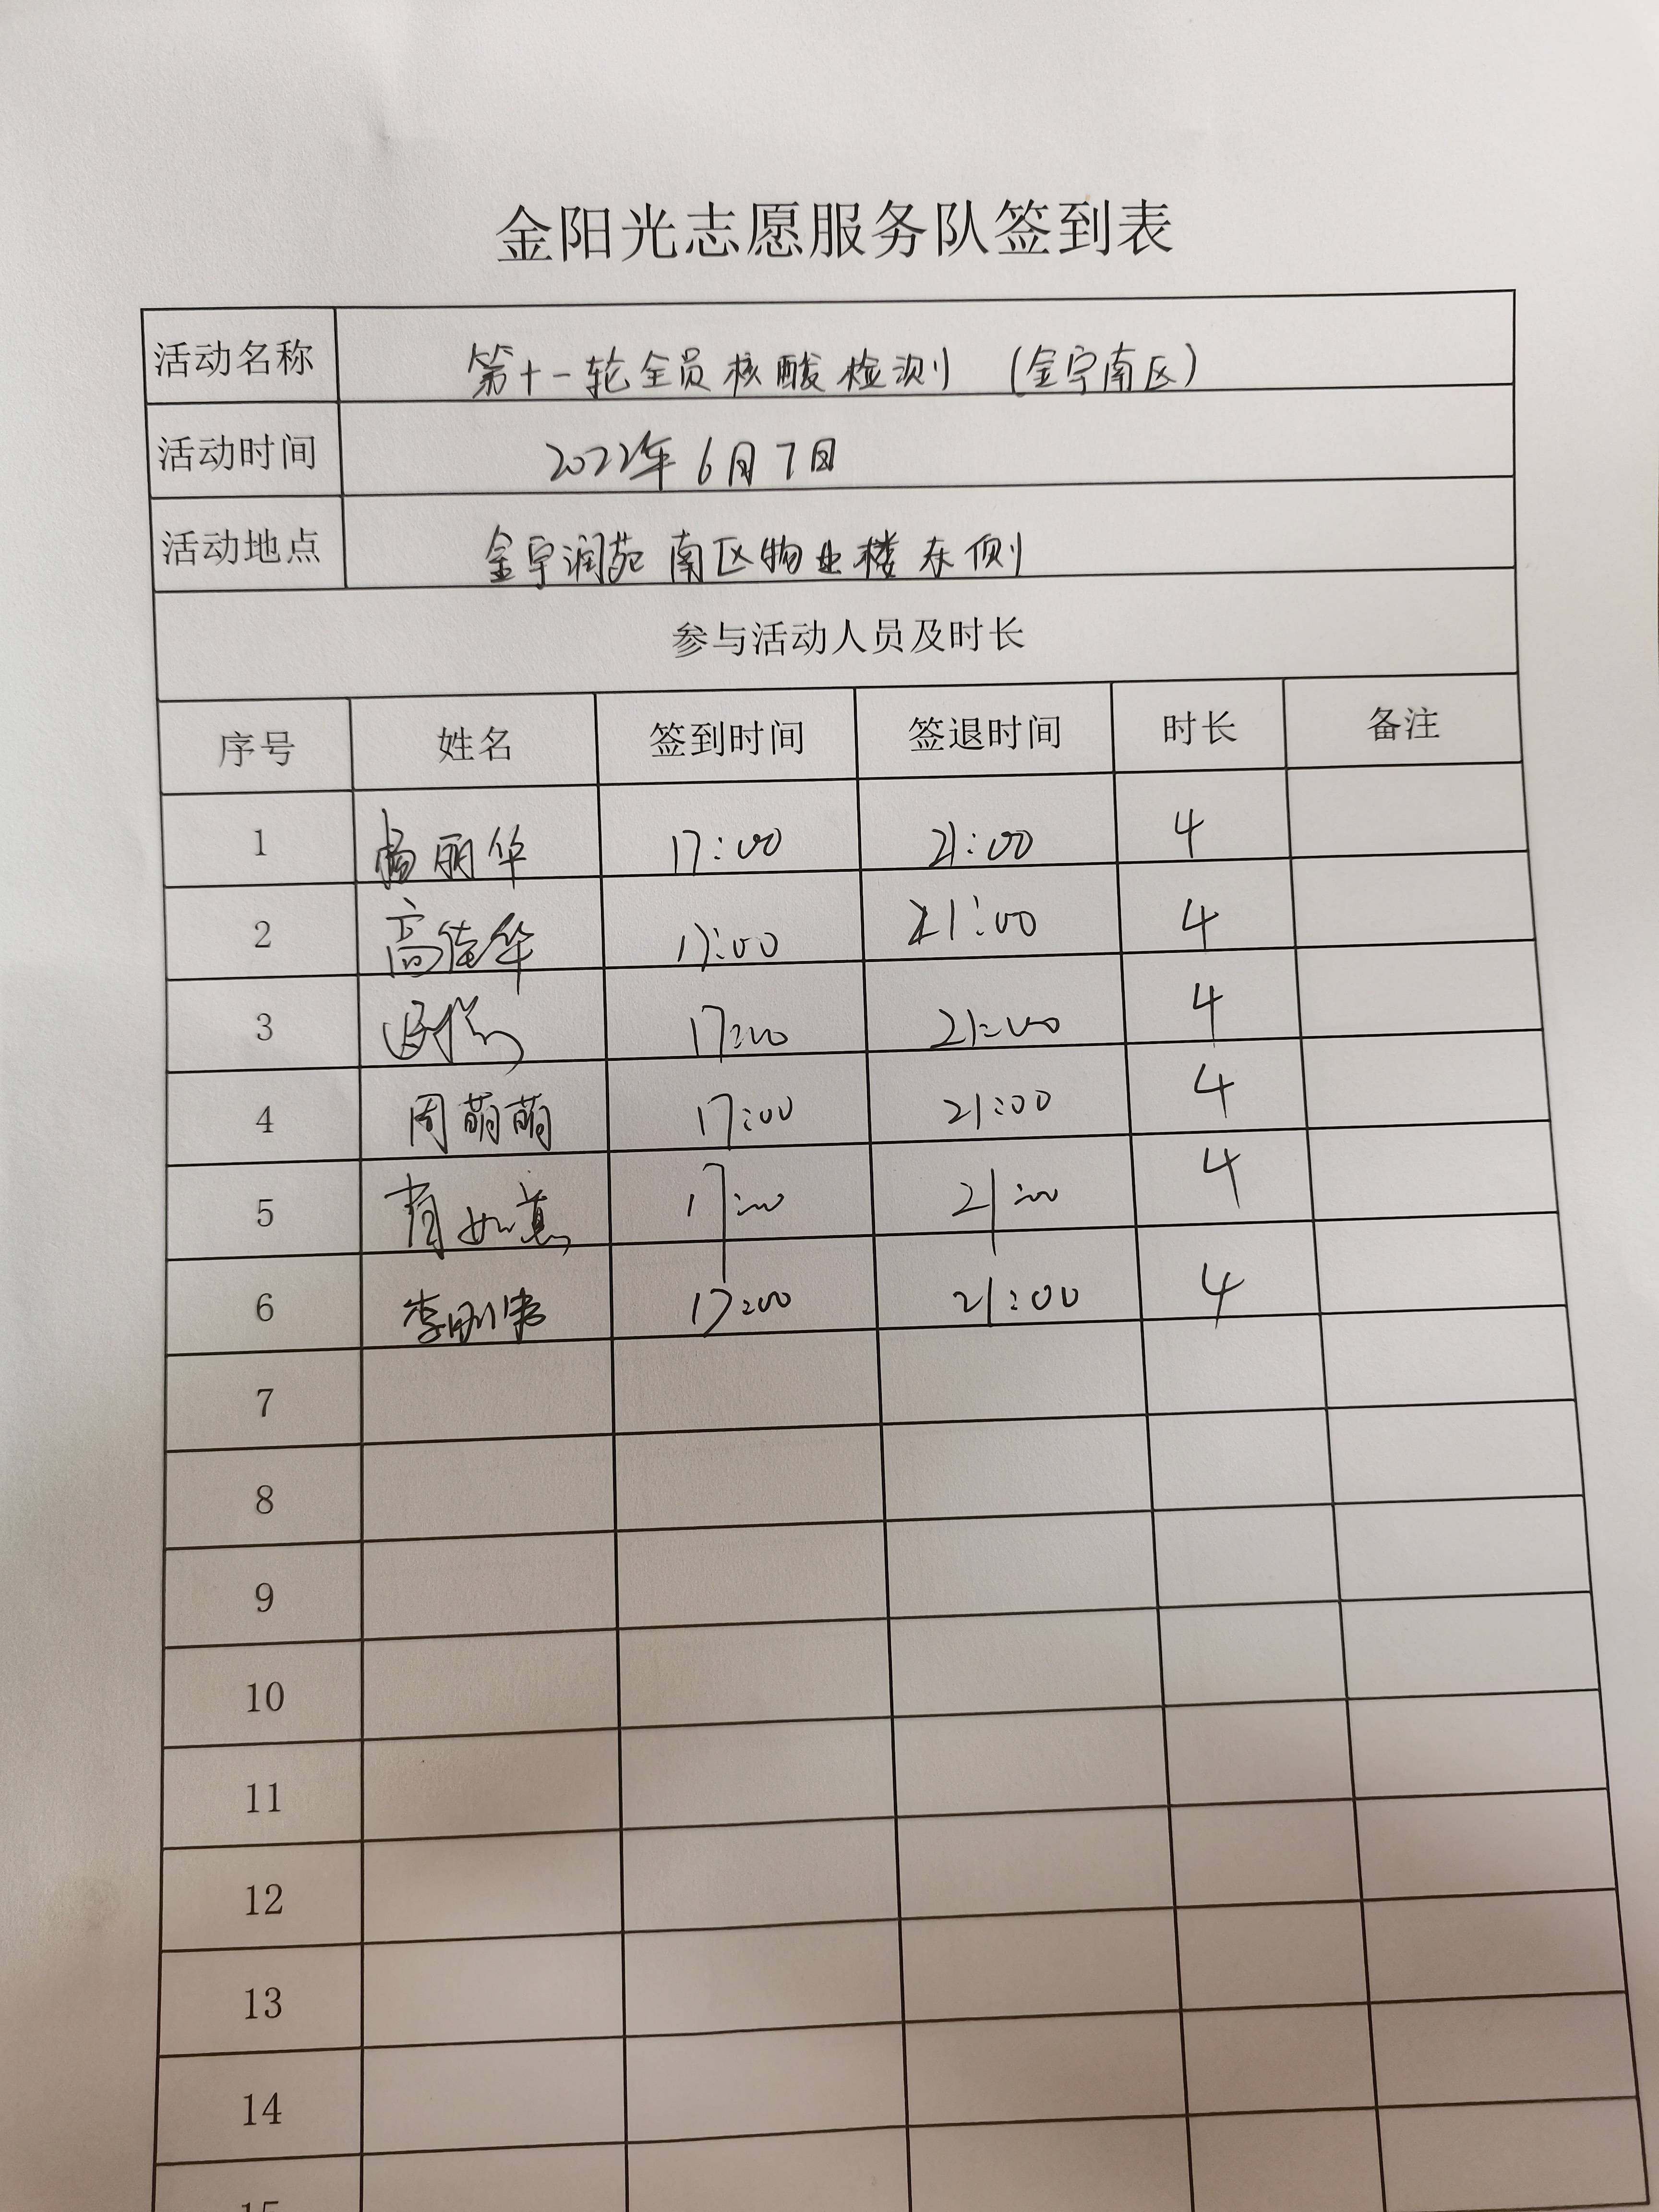 金阳光志愿服务队签到表
活动名称 第十一轮全员核酸检测 (金宇南区)
活动时间 2022年6月7日
活动地点 金宇润苑南区物业楼东侧
参与活动人员及时长
序号 姓名 签到时间 签退时间 时长 备注
1 杨丽华 17:00 21:00 4
2 高德华 17:00 21:00 4
3 17:00 21:00 4
4 周萌萌 17:00 21:00 4
5 肖如意 17:00 21:00 4
6 李刚 17:00 21:00 4
7
8
9
10
11
12
13
14
15